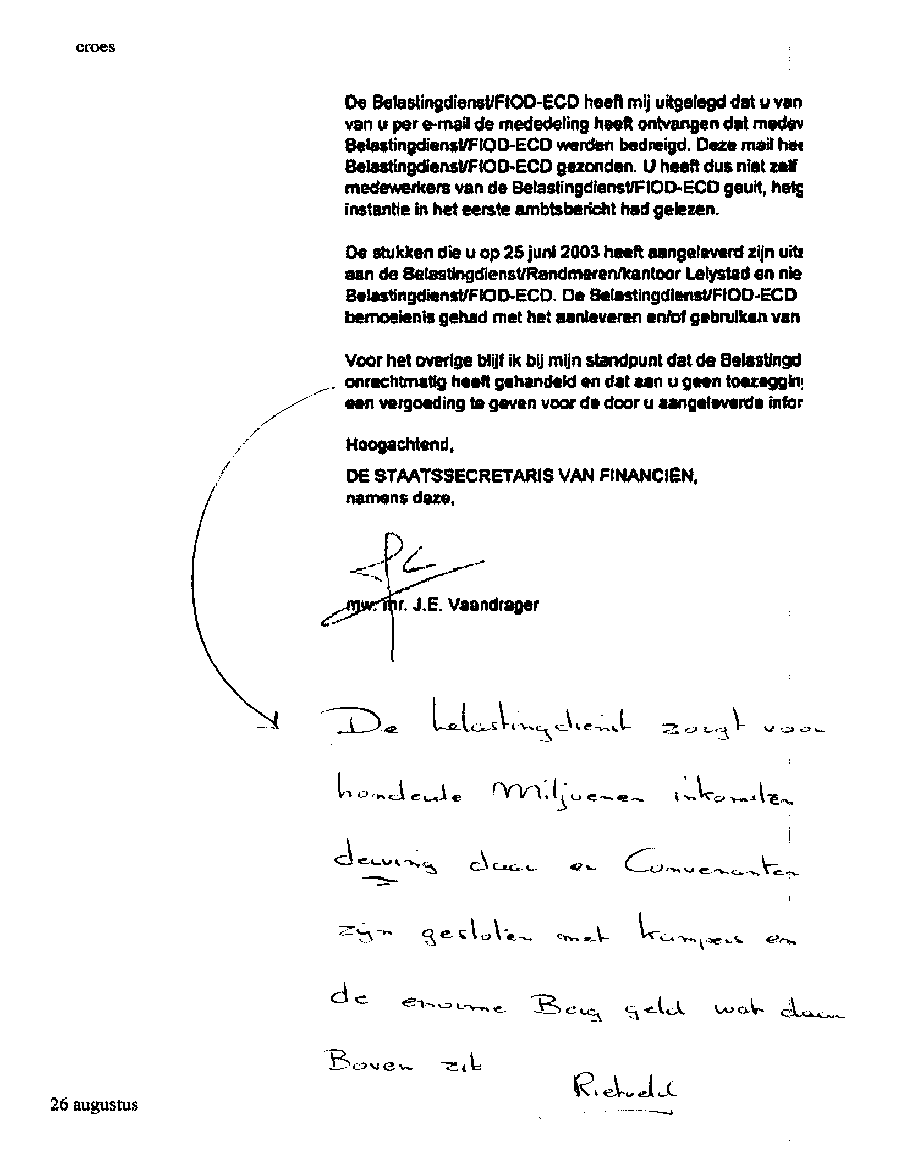 croes
De Belastingdienst/FIOD-ECD heeft mij uitgelegd dat u van
van u per e-mail de mededeling heeft ontvangen dat medew
Belastingdienst/FIOD-ECD werden bedreigd. Deze mail hee
Belastingdienst/FIOD-ECD gezonden. U heeft dus niet zelf
medewerkers van de Belastingdienst/FIOD-ECD geuit, hetg
instantie in het eerste ambtsbericht had gelezen.
De stukken die u op 25 juni 2003 heeft aangeleverd zijn uits
aan de Belastingdienst/Randmeren/kantoor Lelystad en nie
Belastingdienst/FIOD-ECD. De Belastingdienst/FIOD-ECD
bemoeienis gehad met het aanleveren en/of gebruiken van
Voor het overige blijf ik bij mijn standpunt dat de Belastingd
onrechtmatig heeft gehandeld en dat aan u geen toezegging
een vergoeding te geven voor de door u aangeleverde infor
Hoogachtend,
DE STAATSSECRETARIS VAN FINANCIËN,
namens deze,
mw. mr. J.E. Vaandrager
De belastingdienst zorgt voor
honderde Miljoenen inkomsten
derving daar er Convenanten
zijn gesloten met kampers en
de enorme Berg geld wat daar
Boven zit
Rietveld
26 augustus